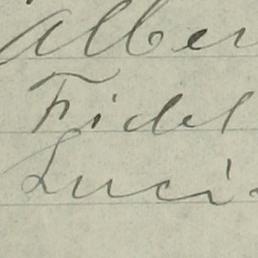 Alber
Fidel
Luci